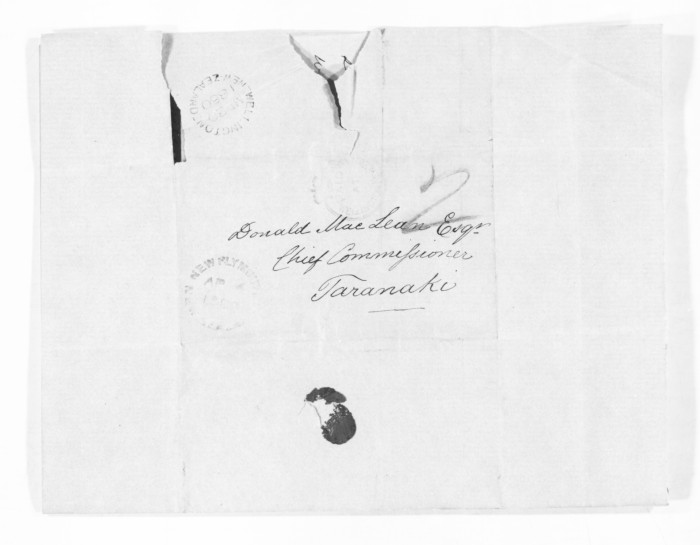 WELLINGTON NEW ZEALAND
2
Donald Mac Lean Esqr
Chief Commissioner
Taranaki
NEW PLYMOUTH